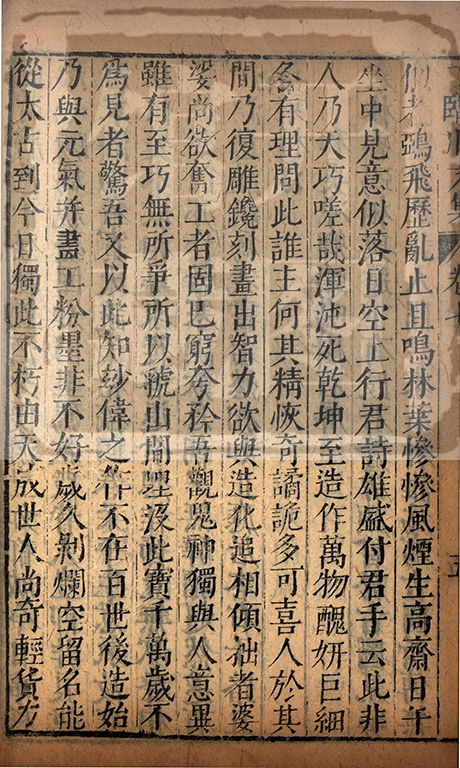 臨川文集 卷七 五
似者鵶飛歷亂止且鳴林葉慘慘風煙生高齋日午
坐中見意似落日空上行君詩雄盛付君手云此非
人乃天巧嗟哉渾沌死乾坤至造作萬物醜妍巨細
各有理問此誰主何其精恢奇譎詭多可喜人於其
間乃復雕鑱刻畫出智力欲與造化追相傾拙者婆
娑尚欲奮工者固已窮夸矜吾觀鬼神獨與人意異
雖有至巧無所爭所以虢山間埋沒此寶千萬歲不
爲見者驚吾又以此知玅偉之作不在百世後造始
乃與元氣并畫工粉墨非不好歲久剝爛空留名能
從太古到今日獨此不朽由天成世人尚奇輕貨力